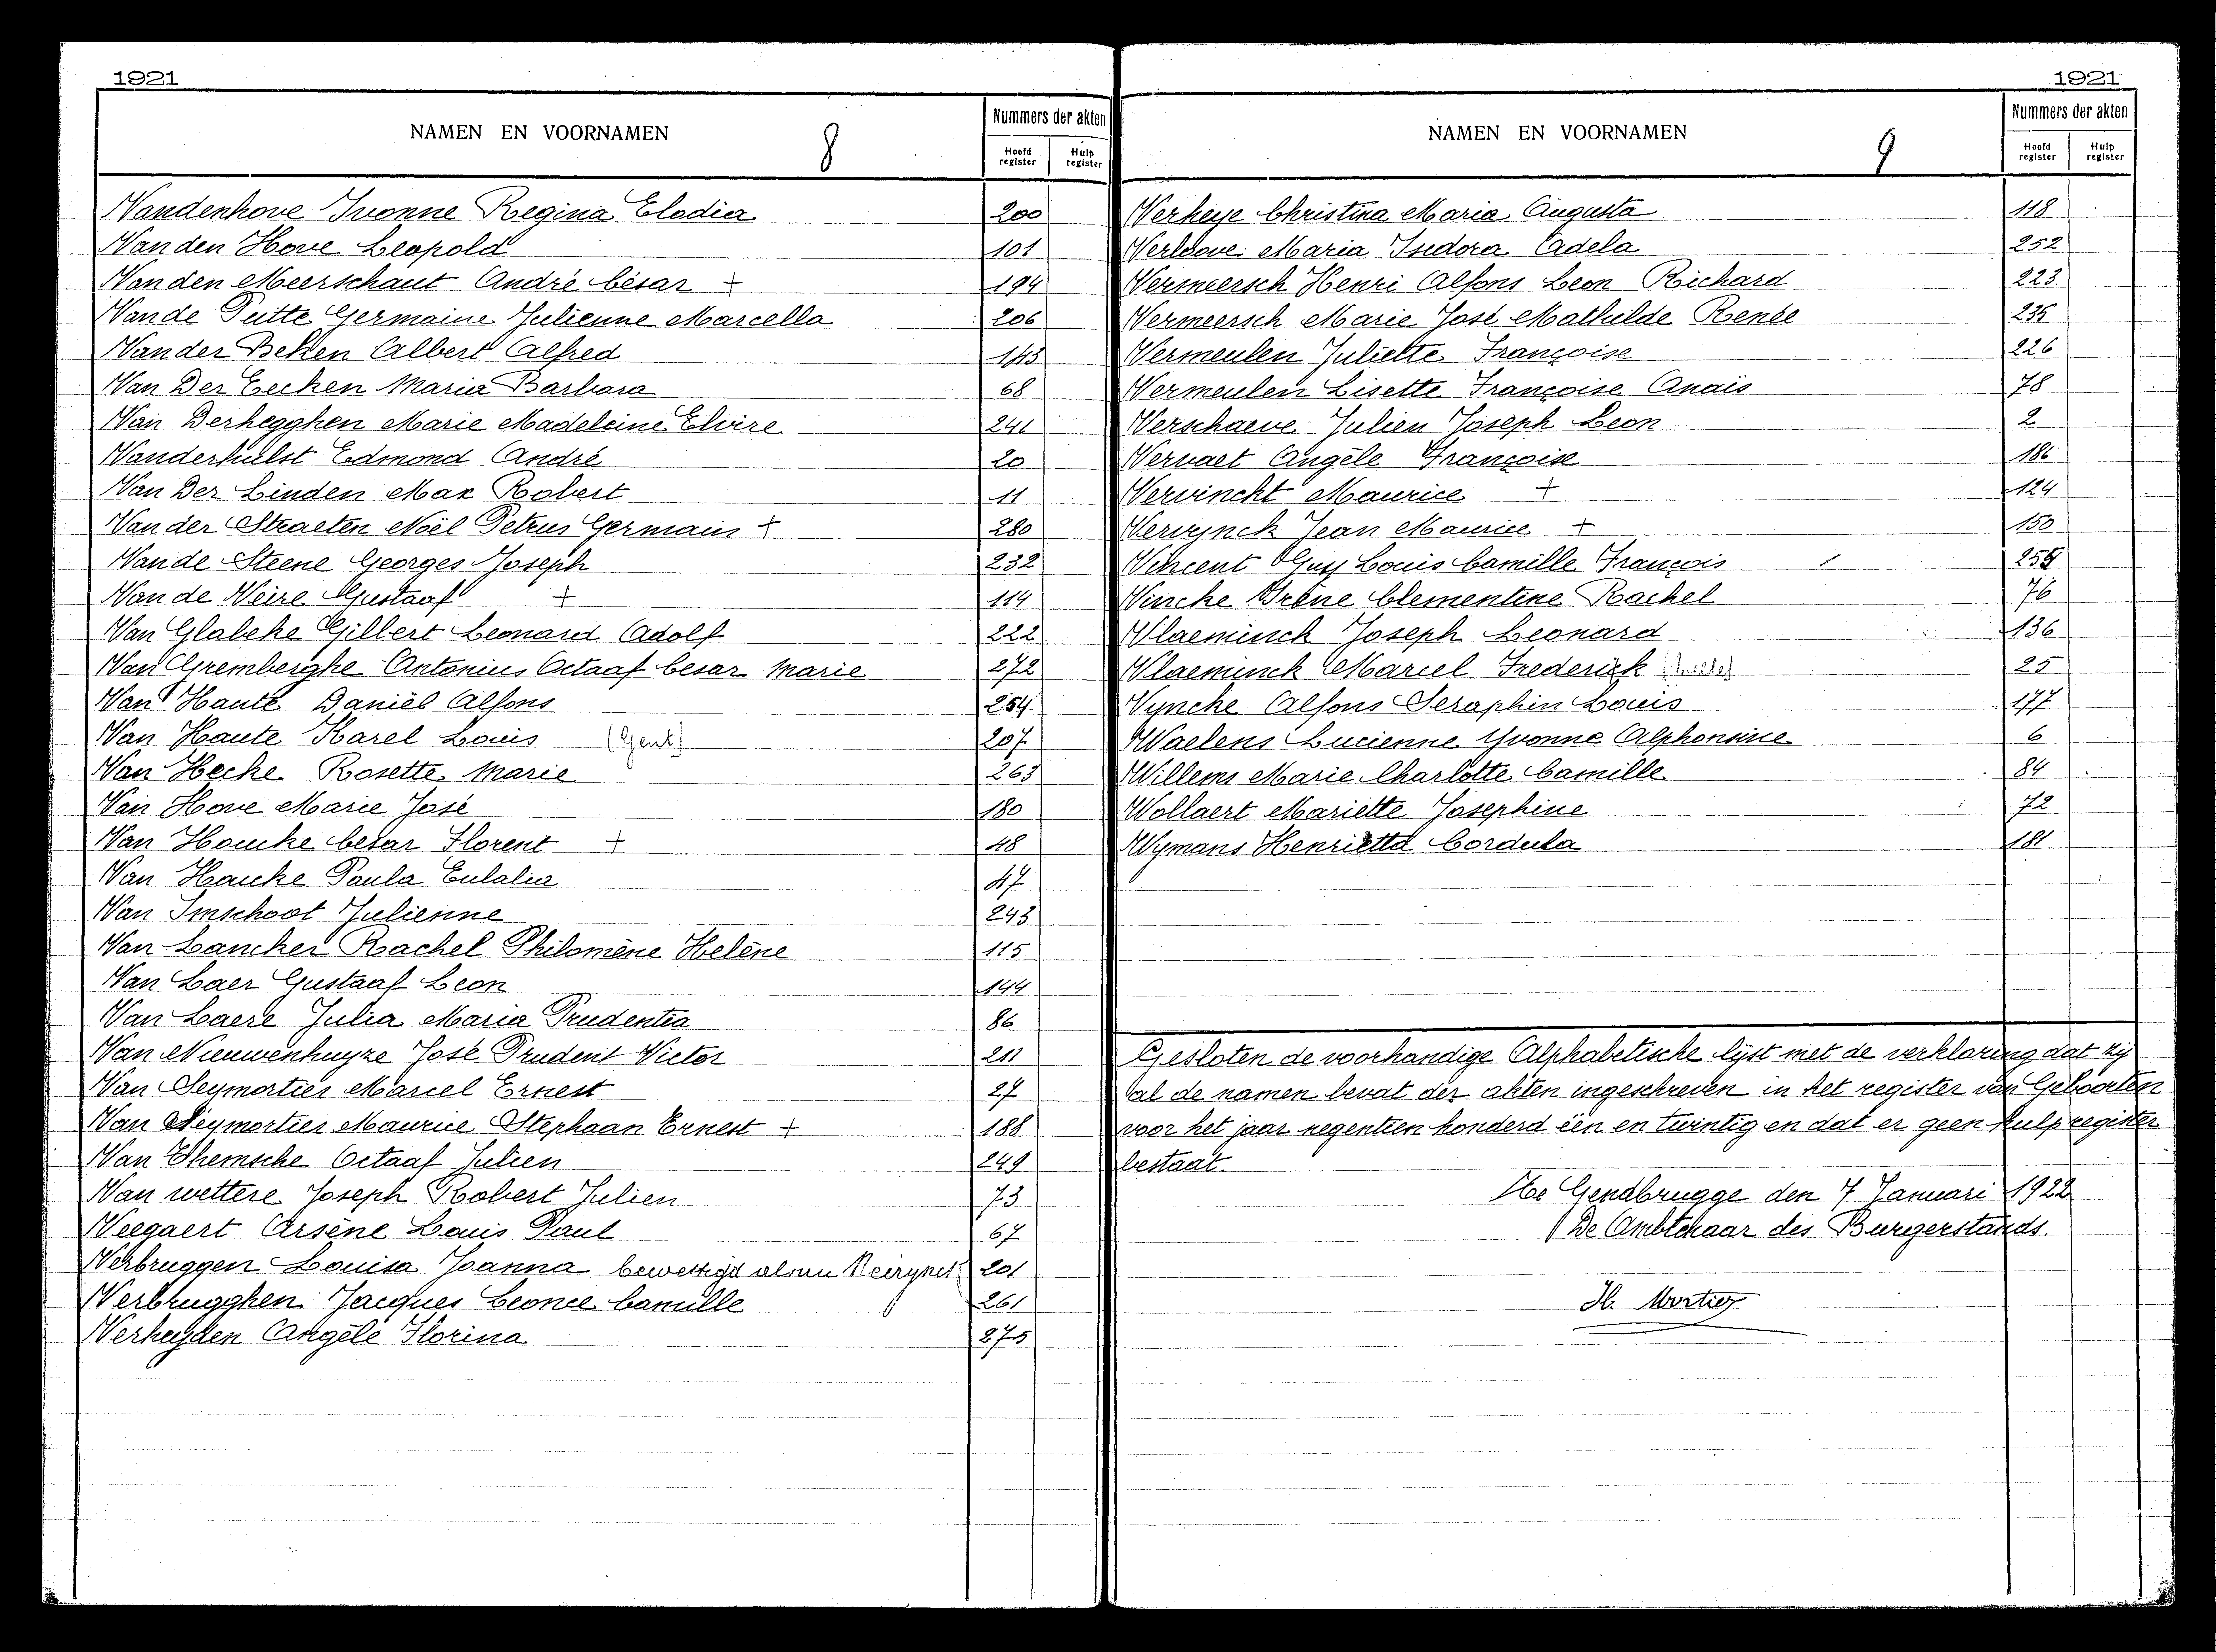 1921
NAMEN EN VOORNAMEN
8
Nummers der akten
Hoofd register
Hulp register
Vandenhove Ivonne Regina Elodia 200
Van den Hove Leopold 101
Van den Meerschaut André César + 194
Van de Putte Germaine Julienne Marcella 206
Van der Beken Albert Alfred 145
Van Der Eecken Maria Barbara 68
Van Derhegghen Marie Madeleine Elvire 241
Vanderhulst Edmond André 20
Van Der Linden Max Robert 11
Van der Straeten Noël Petrus Germain + 280
Van de Steene Georges Joseph 232
Van de Weire Gustaaf + 114
Van Glabeke Gilbert Leonard Adolf 222
Van Gremberghe Antonius Octaaf Cesar Marie 272
Van Haute Daniël Alfons 254
Van Haute Karel Louis (Gent) 207
Van Hecke Rosette Marie 263
Van Hove Marie José 180
Van Houcke Cesar Florent + 48
Van Haucke Paula Eulalia 47
Van Imschoot Julienne 243
Van Lancker Rachel Philomène Helène 115
Van Laer Gustaaf Leon 144
Van Laere Julia Maria Prudentia 86
Van Nieuwenhuyze José Prudent Victor 211
Van Seymortier Marcel Ernest 27
Van Seymortier Maurice Stephaan Ernest + 188
Van Themsche Octaaf Julien 249
Van wettere Joseph Robert Julien 73
Veegaert Arsène Louis Paul 67
Verbruggen Louisa Joanna bewettigd als 201
Verbrugghen Jacques Leonce Camille 261
Verheyden Angèle Florina 275
1921
NAMEN EN VOORNAMEN
9
Nummers der akten
Hoofd register
Hulp register
Verheye Christina Maria Augusta 118
Maria Isidora Adela 252
Vermeersch Henri Alfons Leon Richard 223
Vermeersch Marie José Mathilde Renée 235
Vermeulen Juliette Françoise 226
Vermeulen Lisette Françoise Anaïs 78
Verschaeve Julien Joseph Leon 2
Vervaet Angèle Françoise 186
Vervinckt Maurice + 124
Vervynck Jean Maurice + 150
Vincent Guy Louis Camille François 259
Vincke Irène Clementine Rachel 76
Vlaeminck Joseph Leonard 136
Vlaeminck Marcel Frederick 25
Vyncke Alfons Seraphin Louis 177
Waelens Lucienne Yvonne Alphonsine 6
Willems Marie Charlotte Camille 84
Wollaert Mariette Josephine 72
Wymans Henrietta Cordula 181
Gesloten de voorhandige Alphabetische lijst met de verklaring dat zij
al de namen bevat der akten ingeschreven in het register van Geboorten
voor het jaar negentien honderd één en twintig en dat er geen hulpregister
bestaat.
Te Gendbrugge den 7 Januari 1922
De Ambtenaar des Burgerstands.
H. Mortier